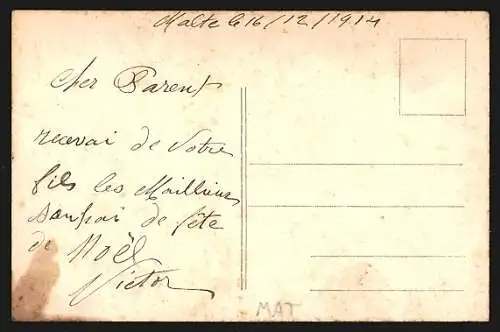 Malte le 16/12/1914
cher Parent
recevai de votre
fils les Meillieurs
souhai de fête
de Noël
Victor
MAT